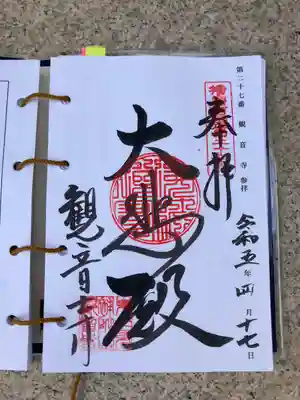 第二十七番 観音寺参拝
奉拝
令和五年四月十七日
大悲殿
觀音寺